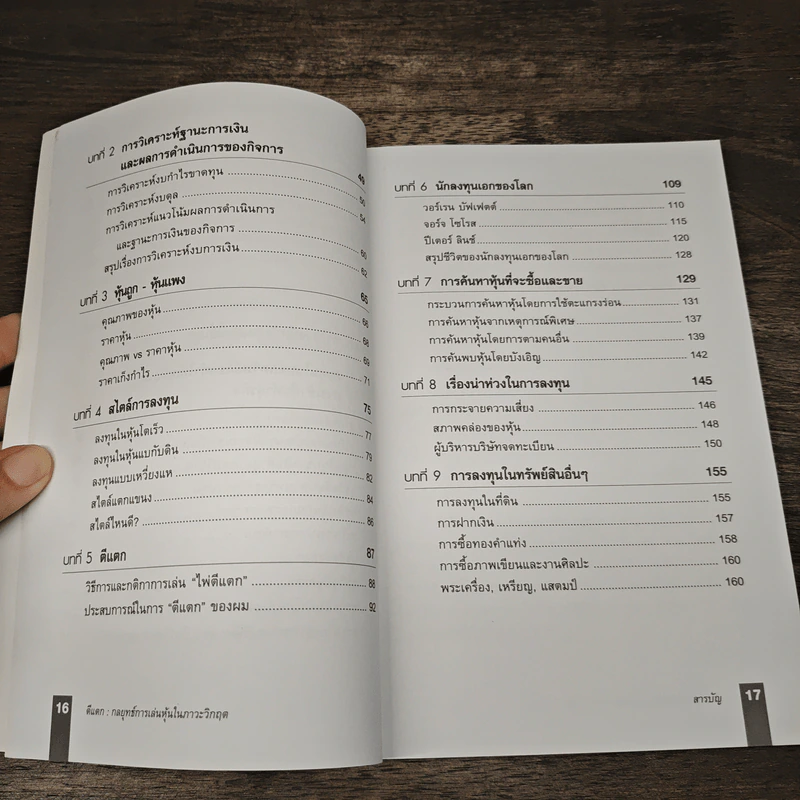 บทที่ 2 การวิเคราะห์ฐานะการเงิน
และผลการดำเนินการของกิจการ 49
การวิเคราะห์งบกำไรขาดทุน 50
การวิเคราะห์งบดุล 54
การวิเคราะห์แนวโน้มผลการดำเนินการ
และฐานะการเงินของกิจการ 60
สรุปเรื่องการวิเคราะห์งบการเงิน 62
บทที่ 3 หุ้นถูก - หุ้นแพง 65
คุณภาพของหุ้น 66
ราคาหุ้น 68
คุณภาพ vs ราคาหุ้น 69
ราคาเก็งกำไร 71
บทที่ 4 สไตล์การลงทุน 75
ลงทุนในหุ้นโตเร็ว 77
ลงทุนในหุ้นแบกับดิน 79
ลงทุนแบบเหวี่ยงแห 82
สไตล์แตกแขนง 84
สไตล์ไหนดี? 86
บทที่ 5 ตีแตก 87
วิธีการและกติกาการเล่น "ไพ่ตีแตก" 88
ประสบการณ์ในการ "ตีแตก" ของผม 92
16 ตีแตก : กลยุทธ์การเล่นหุ้นในภาวะวิกฤต
บทที่ 6 นักลงทุนเอกของโลก 109
วอร์เรน บัฟเฟตต์ 110
จอร์จ โซโรส 115
ปีเตอร์ ลินช์ 120
สรุปชีวิตของนักลงทุนเอกของโลก 128
บทที่ 7 การค้นหาหุ้นที่จะซื้อและขาย 129
กระบวนการค้นหาหุ้นโดยการใช้ตะแกรงร่อน 131
การค้นหาหุ้นจากเหตุการณ์พิเศษ 137
การค้นหาหุ้นโดยการตามคนอื่น 139
การค้นพบหุ้นโดยบังเอิญ 142
บทที่ 8 เรื่องน่าห่วงในการลงทุน 145
การกระจายความเสี่ยง 146
สภาพคล่องของหุ้น 148
ผู้บริหารบริษัทจดทะเบียน 150
บทที่ 9 การลงทุนในทรัพย์สินอื่นๆ 155
การลงทุนในที่ดิน 155
การฝากเงิน 157
การซื้อทองคำแท่ง 158
การซื้อภาพเขียนและงานศิลปะ 160
พระเครื่อง, เหรียญ, แสตมป์ 160
สารบัญ 17